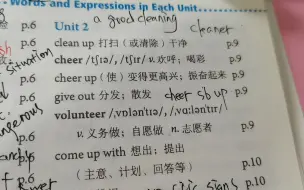 Words and Expressions in Each Unit
Unit 2
a good cleaning
cleaner
p.6 clean up 打扫（或清除）干净 p.9
situation
p.6 cheer /tʃɪə/, /tʃɪr/ v. 欢呼；喝彩 p.9
p.6 cheer up（使）变得更高兴；振奋起来 p.9
p.6 give out 分发；散发 p.9
cheer sb up
volunteer /ˌvɒlənˈtɪə/, /ˌvɑːlənˈtɪr/
p.6 v. 义务做；自愿做 n. 志愿者 p.9
p.6 come up with 想出；提出
（主意、计划、回答等） p.10
signs p.10